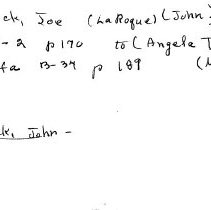 ck, Joe (LaRoque) (John
-2 p170 to (Angela T
fa B-34 p 189 (
ck, John -